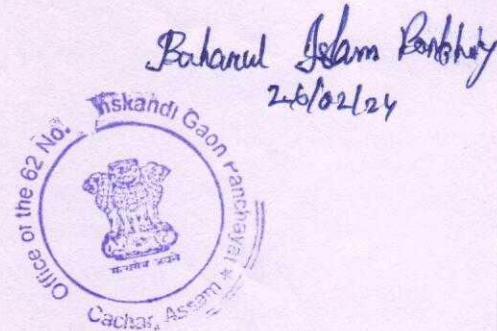 Baharul Islam
26/02/24
Office of the 62 No. nskandi Gaon Panchayat * Cachar, Assam *
सत्यमेव जयते